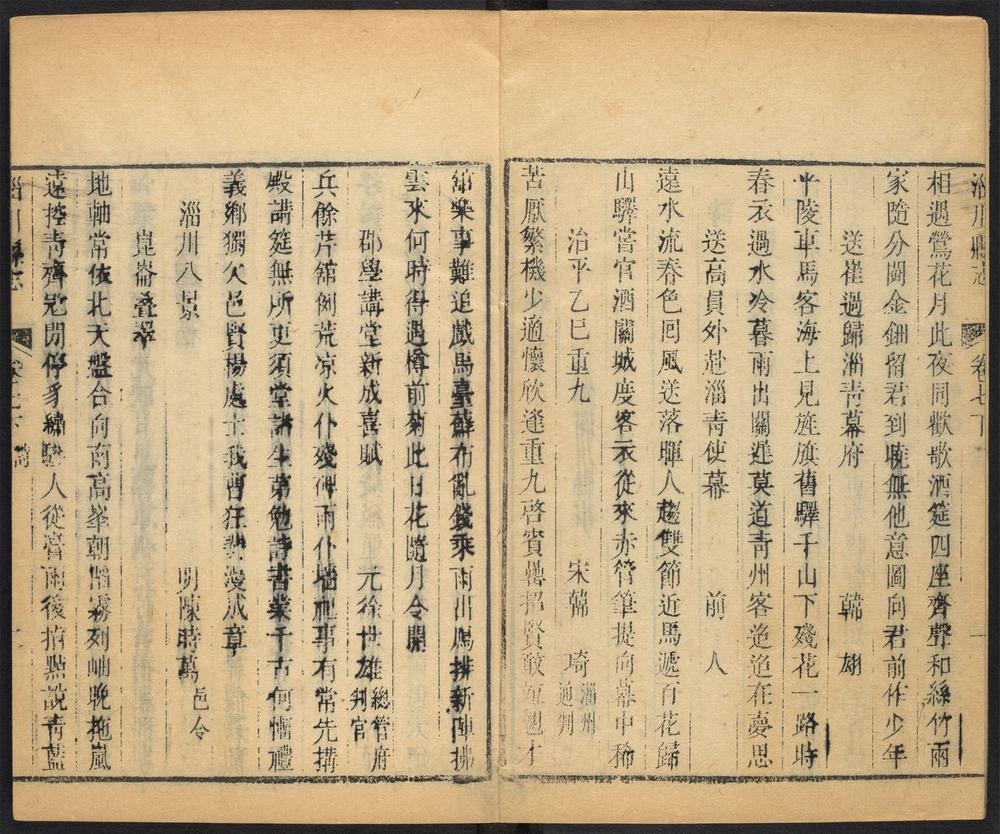 淄川縣志
卷七下
相遇鶯花月此夜同歡歌酒筵四座齊聲和絲竹兩
家隨分鬬金鈿留君到曉無他意圖向君前作少年
送崔過歸淄青幕府 韓翃
平陵車馬客海上見旌旗舊驛千山下殘花一路時
春衣過水冷暮雨出關遲莫道青州客迢迢在夢思
送高員外赴淄青使幕 前人
遠水流春色回風送落暉人趨雙節近馬遞百花歸
山驛嘗官酒關城度客衣從來赤管筆提向幕中稀
治平乙巳重九 宋韓琦 淄州通判
苦厭繁機少適懷欣逢重九啓賓罍招賢敢並翹才
館樂事難追戲馬臺蘚布亂錢乘雨出鴈排新陣拂
雲來何時得遇樽前菊此日花隨月令開
郡學講堂新成喜賦 元徐世雄 總管府判官
兵餘芹舘例荒凉火仆殘碑雨仆墻祀事有常先搆
殿講筵無所更須堂諸生第勉詩書業千古何慚禮
義鄉獨欠邑賢楊處士我曹狂斐漫成章
淄川八景
崑崙疊翠 明陳時萬 邑令
地軸常依北天盤合向南高峯朝㬤霧列岫晚拖嵐
遠控青齊冦閒停豸繡驂人從膏雨後指點說青藍
淄川縣志